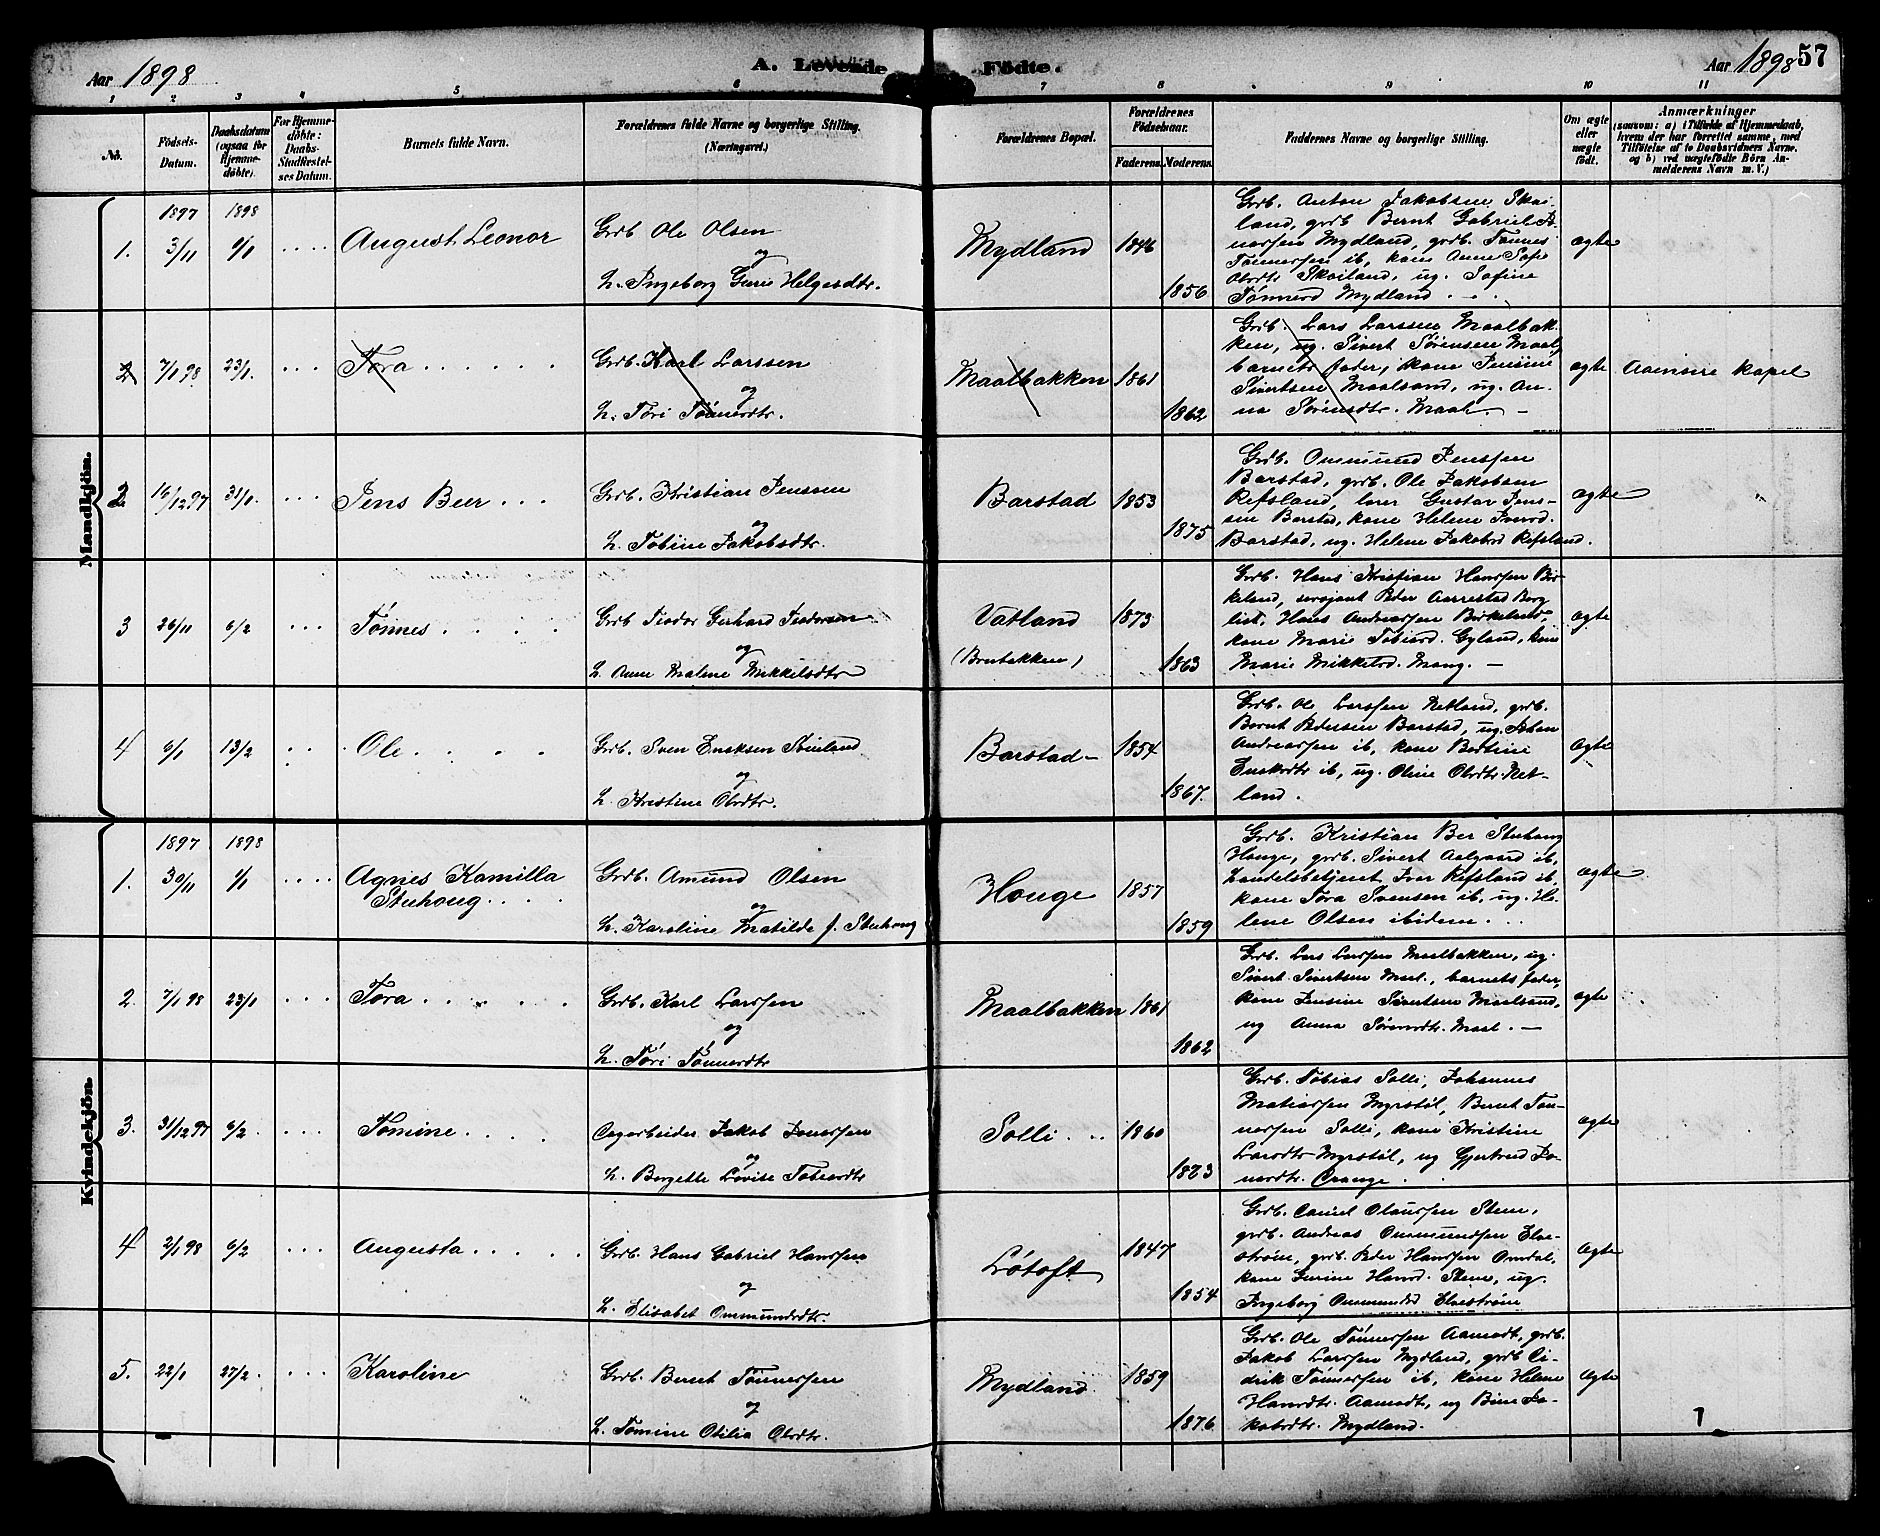 Aar 1898
A. Levende Fødte.
Aar 1898
57
1 2 3 4 5 6 7 8 9 10 11
No.
Fødsels-Datum.
Daabsdatum (ogsaa for Hjemmedøbte).
For Hjemmedøbte: Daabs-Stadfæstelses Datum.
Barnets fulde Navn.
Forældrenes fulde Navne og borgerlige Stilling. (Næringsvei.)
Forældrenes Bopæl.
Forældrenes Fødselsaar.
Faderens. Moderens.
Faddernes Navne og borgerlige Stilling.
Om ægte eller uægte født.
Anmærkninger
(saasom: a) i Tilfælde af Hjemmedaab, hvem der har forrettet samme, med Tilføielse af to Daabsvidners Navne, og b) ved uægtefødte Børn Anmelderens Navn m. V.)
Mandkjön.
1897 1898
1. 3/11 1/1 August Leonor
Grdb Ole Olsen
og
h. Ingeborg Gurie Helgesdtr.
Mydland 1846
1856
Grdb. Anton Jakobsen Skailand, grdb Bernt Gabriel
Mydland, grdb. Tønnes
Tønnessen ib, kone Anne Sofie
Olsdtr Skailand, ug. Sofine
Tønnesd Mydland
ægte
2 7/1 98 23/1. Tora
Grdb. Karl Larssen
og
h. Tori Tønnesdtr.
Maalbakken 1861
1862
Grdb. Lars Larssen Maalbakken, ug. Sivert Sørensen Maal,
barnets fader, kone Jensine
Sivertsen Maalsand, ug. Anna Sørensdtr. Maal.
ægte
Aaensire kapel
2 16/12 97 31/1. Jens Beer
Grdb. Kristian Jenssen
og
h. Tobine Jakobsdtr.
Barstad 1853
1875
Grdb. Ommund Jenssen
Barstad, grdb. Ole Jakobsen
Refsland, lærer Gustav Jenssen Barstad, kone Helene Iversd.
Barstad, ug. Helene Jakobsd Refsland.
ægte
3 26/11 6/2 Tønnes
Grdb Teodor Gerhard Teodorsen
og
h. Anne Malene Mikkelsdtr
Vatland
(Brubakken)
1873
1863
Grdb. Hans Kristian Hanssen Birkeland, sersjant Peder Aarrestad Berglist, Hans Andreassen Birkeland,
kone Marie Tobiasd. Gyland, kone
Marie Mikkelsd. Mong.
ægte
4 6/1 13/2 Ole
Grdb. Sven Eriksen Svinland
og
h. Kristine Olsdtr.
Barstad 1854
1867.
Grdb. Ole Larssen Netland, grdb.
Bernt Pedersen Barstad, ug. Peder
Andreassen ib, kone Bertine
Eriksdtr ib, ug. Oline Olsdtr. Netland.
ægte
Kvindekjön.
1897 1898
1. 30/11 1/1 Agnes Kamilla
Stuhoug
Grdb. Amund Olsen
og
h. Karoline Matilde f. Stuhoug
Houge 1857
1859
Grdb. Kristian Ber Stuhoug
Houge, grdb. Sivert Aalgaard ib,
handelsbetjent Ivar Refsland ib
kone Tora Svensen ib, ug. Helene Olsen ibidem.
ægte
2. 7/1 98 23/1 Tora
Grdb. Karl Larssen
og
h. Tori Tønnesdtr
Maalbakken 1861
1862
Grdb. Lars Larssen Maalbakken, ug.
Sivert Sivertsen Maal., barnets fader,
kone Jensine Sivertsen Maalsand,
ug Anna Sørensdtr. Maal.
ægte
3. 31/12 97 6/2. Tomine
Dagarbeider Jakob Jonassen
og
h. Borgette Lovise Tobiasdtr
Solli 1860
1873
Grdb. Tobias Solli, Johannes
Matiassen Myrstøl, Bernt Tønnessen Solli, kone Kristine
Larsdtr Myrstøl, ug Gjertrud Jonasdtr. Orange.
ægte
4 2/1 98 6/2 Augusta
Grdb. Hans Gabriel Hanssen
og
h. Elisabet Ommundsdtr.
Løtoft 1847
1854
Grdb. Daniel Olaussen Stene,
grdb. Andreas Ommundsen Elvestrøm, grdb. Peder Hanssen Omdal,
kone Gurine Hansd. Stene, ug.
Ingeborg Ommundsd Elvestrøm
ægte
5. 22/1 27/2. Karoline
Grdb. Bernt Tønnessen
og
h. Tomine Otilia Olsdtr.
Mydland 1859
1876
Grdb. Ole Tønnessen Aamodt, grdb.
Jakob Larssen Mydland, grdb Didrik Tønnessen ib, kone Helene
Hansdtr. Aamodt, ug Bine Jakobsdtr. Mydland.
ægte